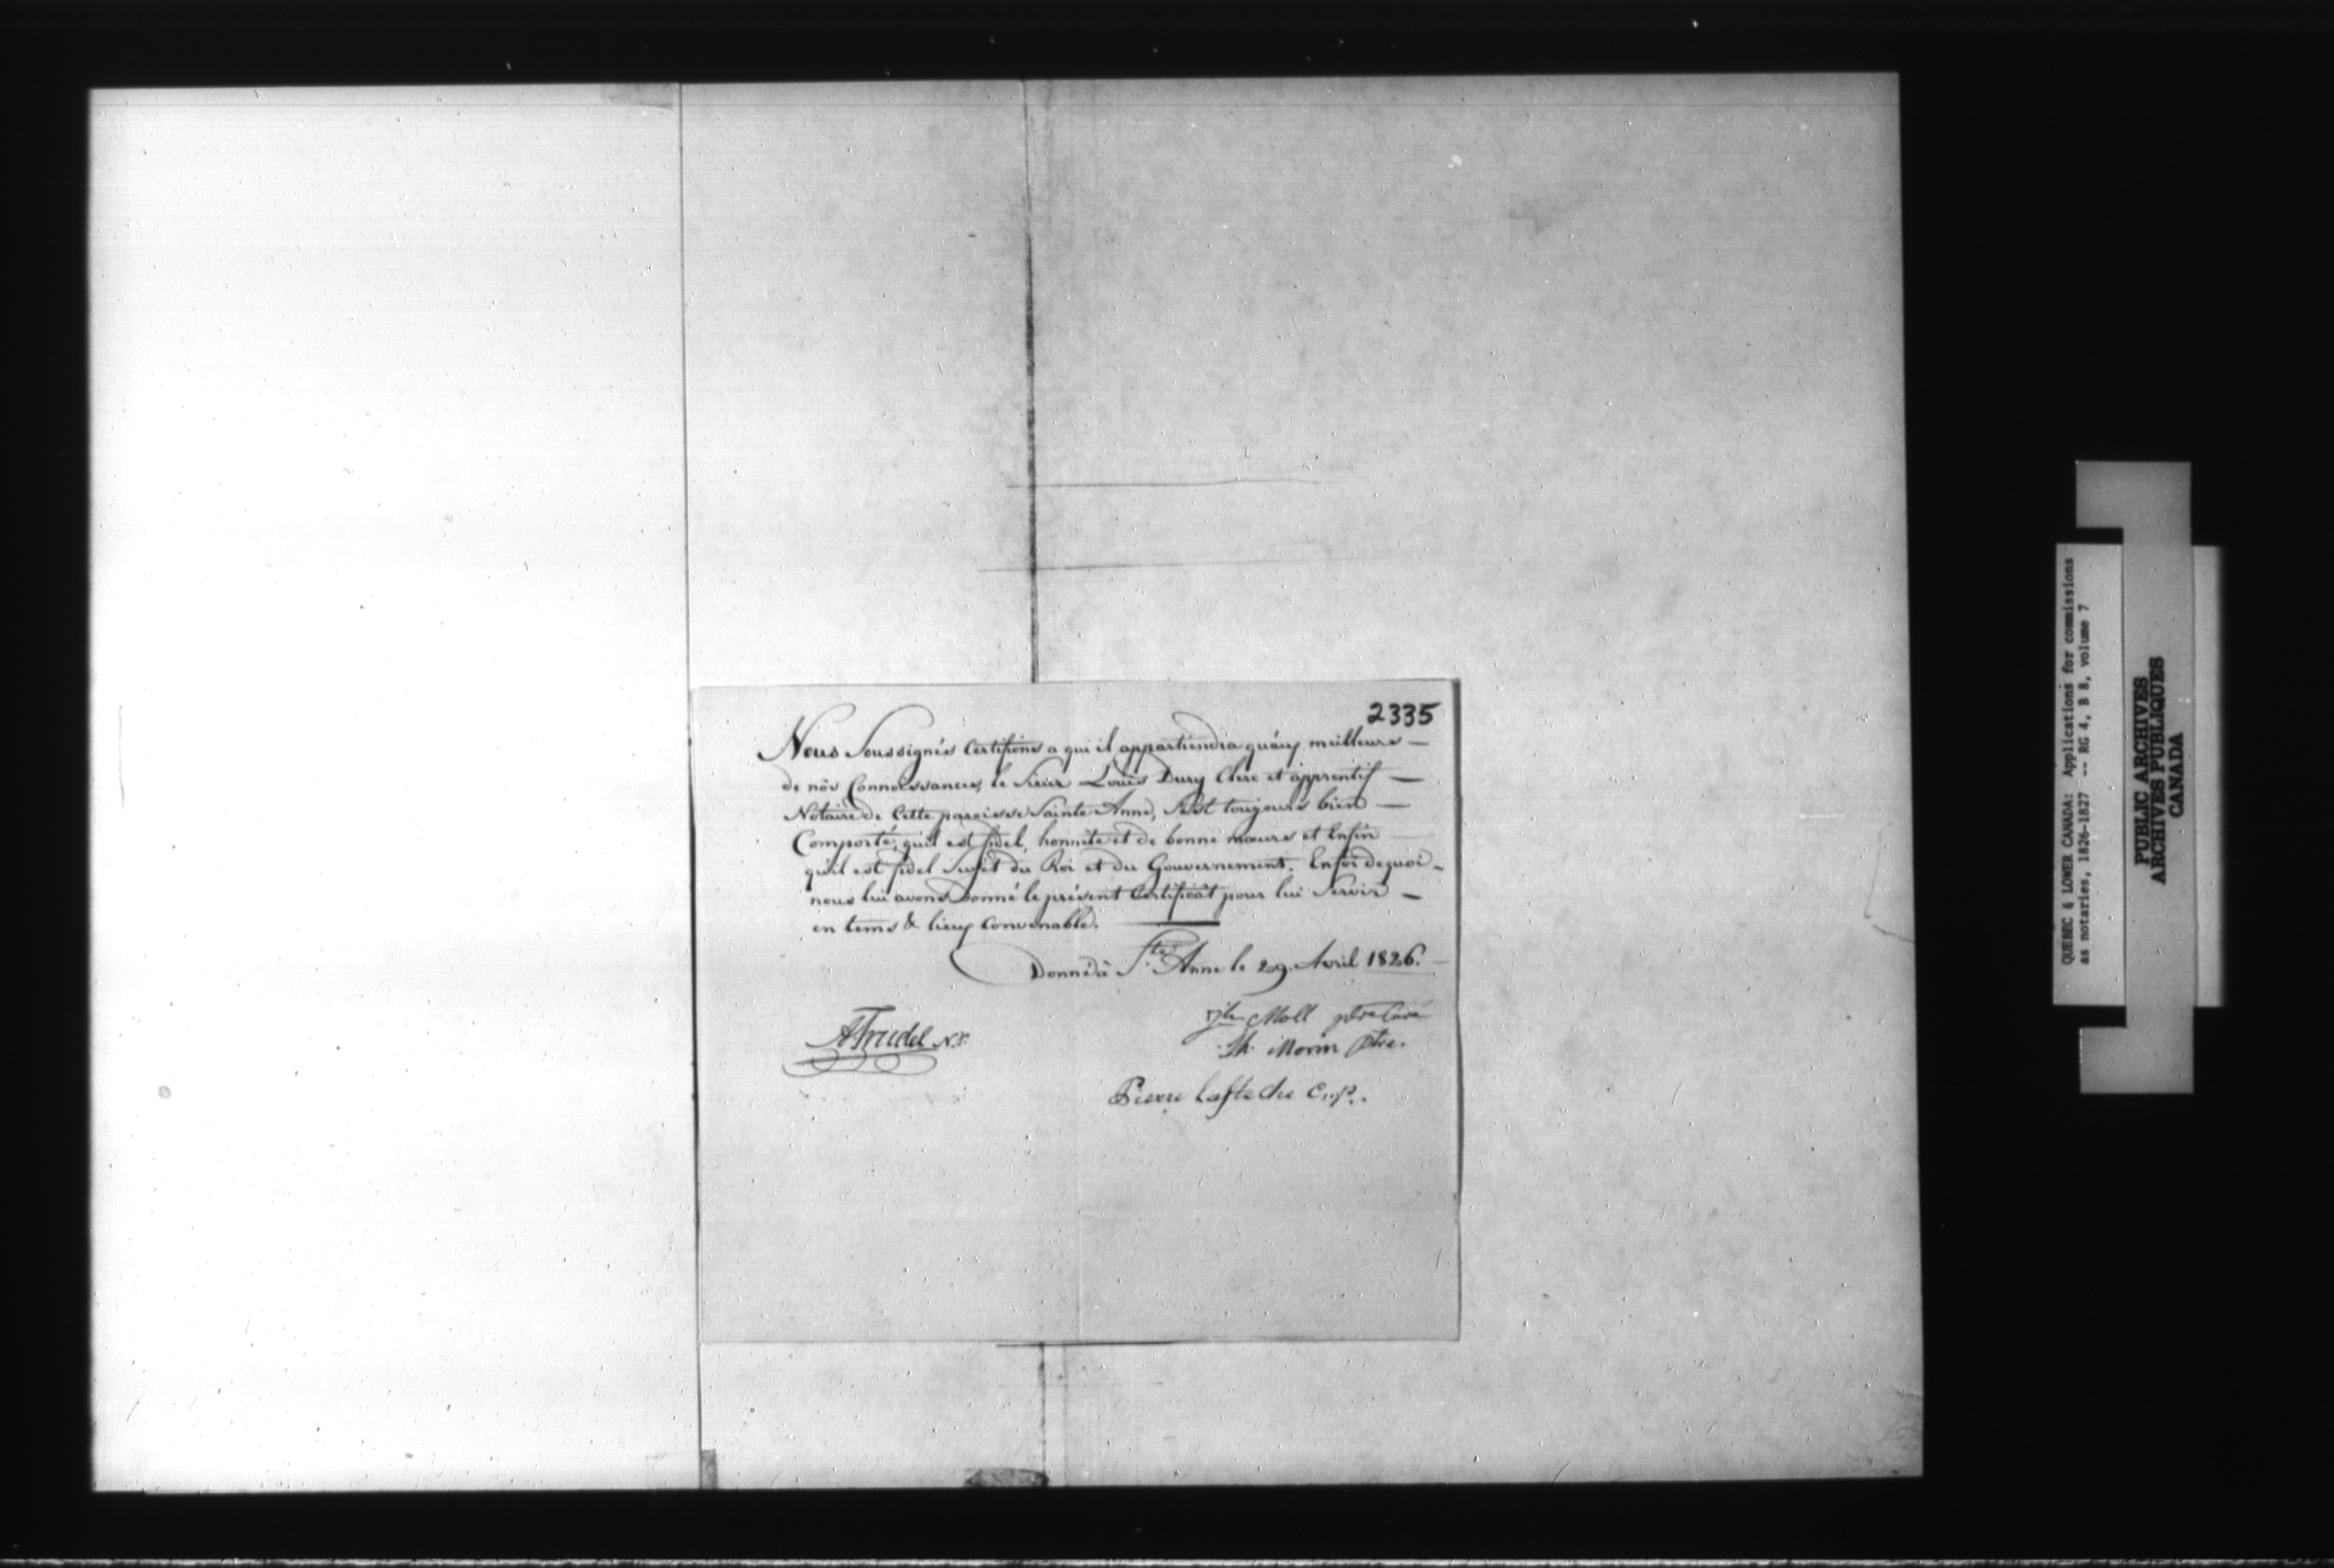 2335
Nous Soussignés Certifions a qui il appartiendra qu'aux meilleures —
de nôs Connoissances, le Sieur Louis Dury Clerc et apprentif —
Notaire de Cette paroisse Sainte Anne, S'est toujours bien —
Comporté, qu'il est fidel, honnête et de bonne mœurs et Enfin —
qu'il est fidel Sujèt du Roi et du Gouvernement. En foi de quoi –
nous lui avons Donné le présent Certificât pour lui Servir —
en tems & lieux Convenable. ——
Donné à Ste Anne le 29. Avril 1826. —
A Trudel N.P.
Jh Moll ptre Curé
Th. Morin Ptre.
Pierre Lafleche C..P..
QUEBEC & LOWER CANADA: Applications for commissions
as notaries, 1826-1827 -- RG 4, B 8, volume 7
PUBLIC ARCHIVES
ARCHIVES PUBLIQUES
CANADA